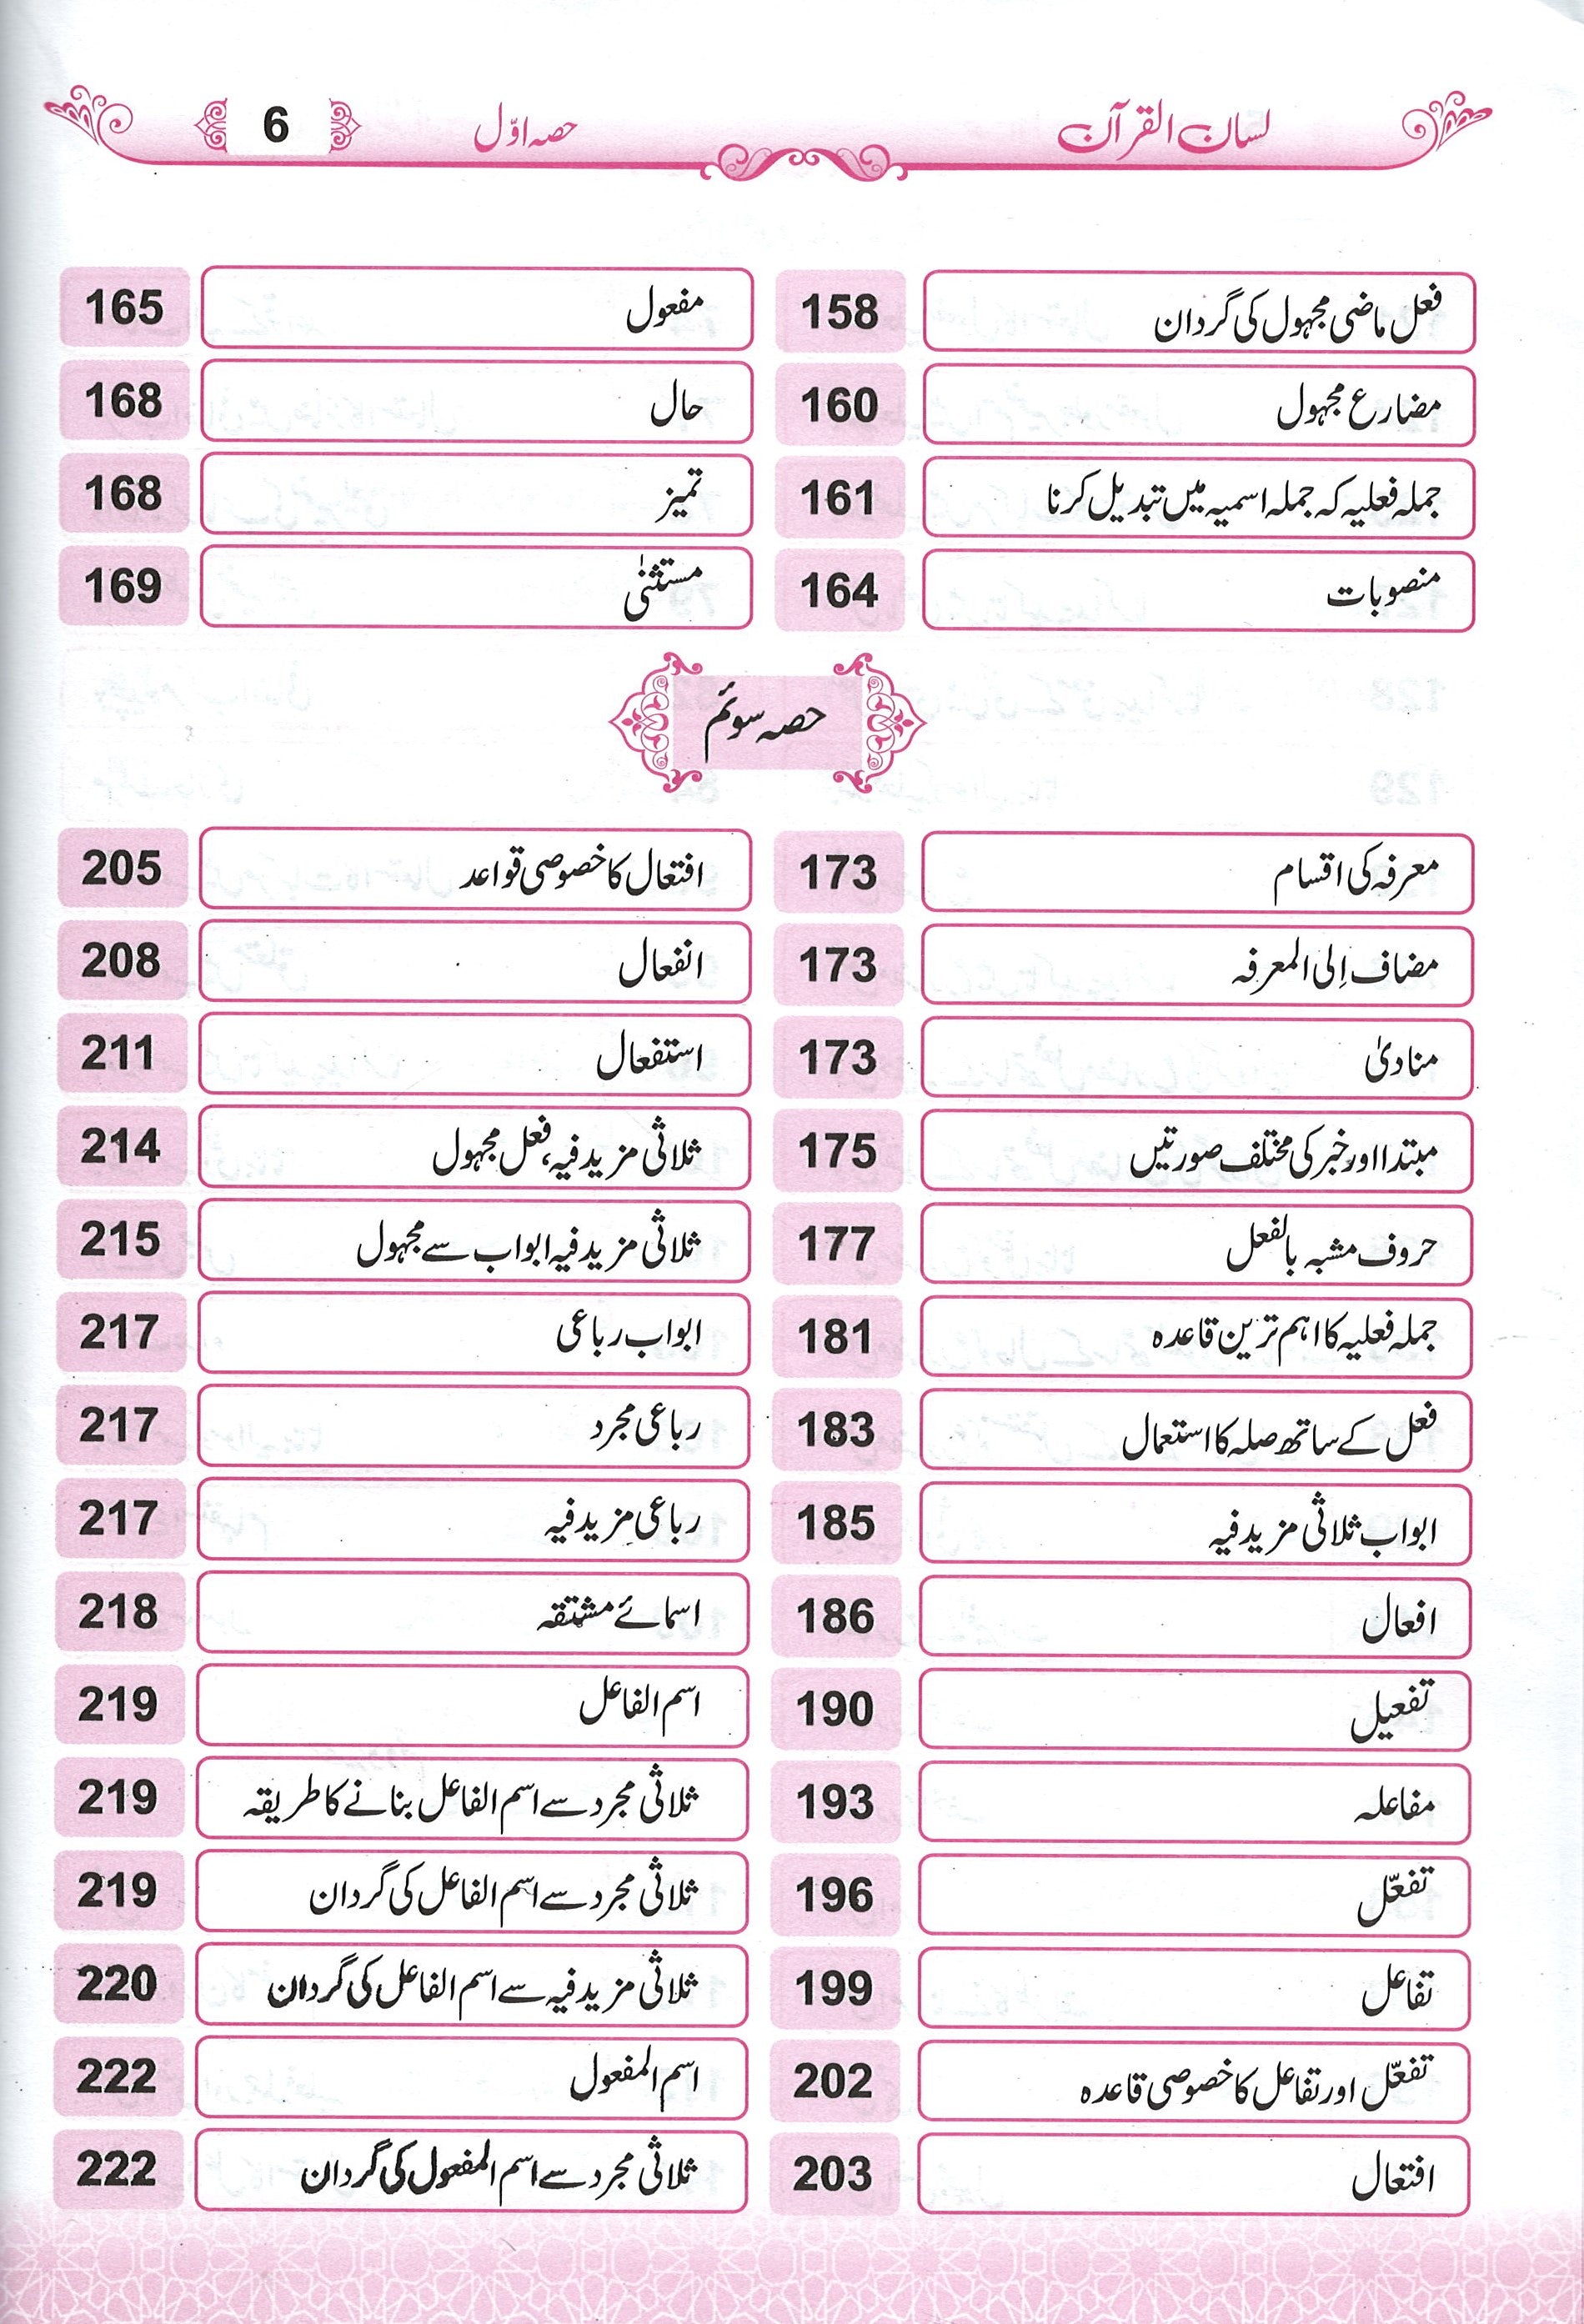 لسان القرآن حصہ اوّل 6
فعل ماضی مجہول کی گردان 158
مضارع مجہول 160
جملہ فعلیہ کہ جملہ اسمیہ میں تبدیل کرنا 161
منصوبات 164
مفعول 165
حال 168
تمیز 168
مستثنٰی 169
حصہ سوئم
معرفہ کی اقسام 173
مضاف اِلی المعرفہ 173
منادیٰ 173
مبتدا اور خبر کی مختلف صورتیں 175
حروف مشبہ بالفعل 177
جملہ فعلیہ کا اہم ترین قاعدہ 181
فعل کے ساتھ صلہ کا استعمال 183
ابواب ثلاثی مزید فیہ 185
افعال 186
تفعیل 190
مفاعلہ 193
تفعّل 196
تفاعل 199
تفعّل اور تفاعل کا خصوصی قاعدہ 202
افتعال 203
افتعال کا خصوصی قواعد 205
انفعال 208
استفعال 211
ثلاثی مزید فیہ، فعل مجہول 214
ثلاثی مزید فیہ ابواب سے مجہول 215
ابواب رباعی 217
رباعی مجرد 217
رباعی مزید فیہ 217
اسمائے مشتقہ 218
اسم الفاعل 219
ثلاثی مجرد سے اسم الفاعل بنانے کا طریقہ 219
ثلاثی مجرد سے اسم الفاعل کی گردان 219
ثلاثی مزید فیہ سے اسم الفاعل کی گردان 220
اسم المفعول 222
ثلاثی مجرد سے اسم المفعول کی گردان 222